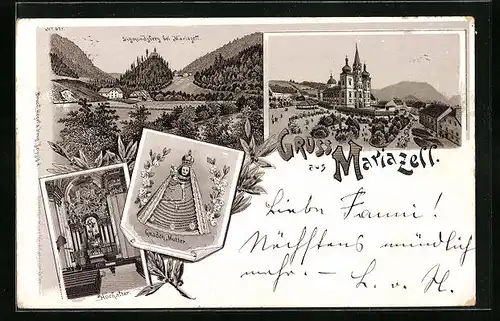 Sigmundsberg bei Mariazell.
GRUSS
aus MARIAZELL.
Gnaden Mutter
Hochaltar
Liebe Fanni!
Nächstens mündlich
mehr. – L. v. H.